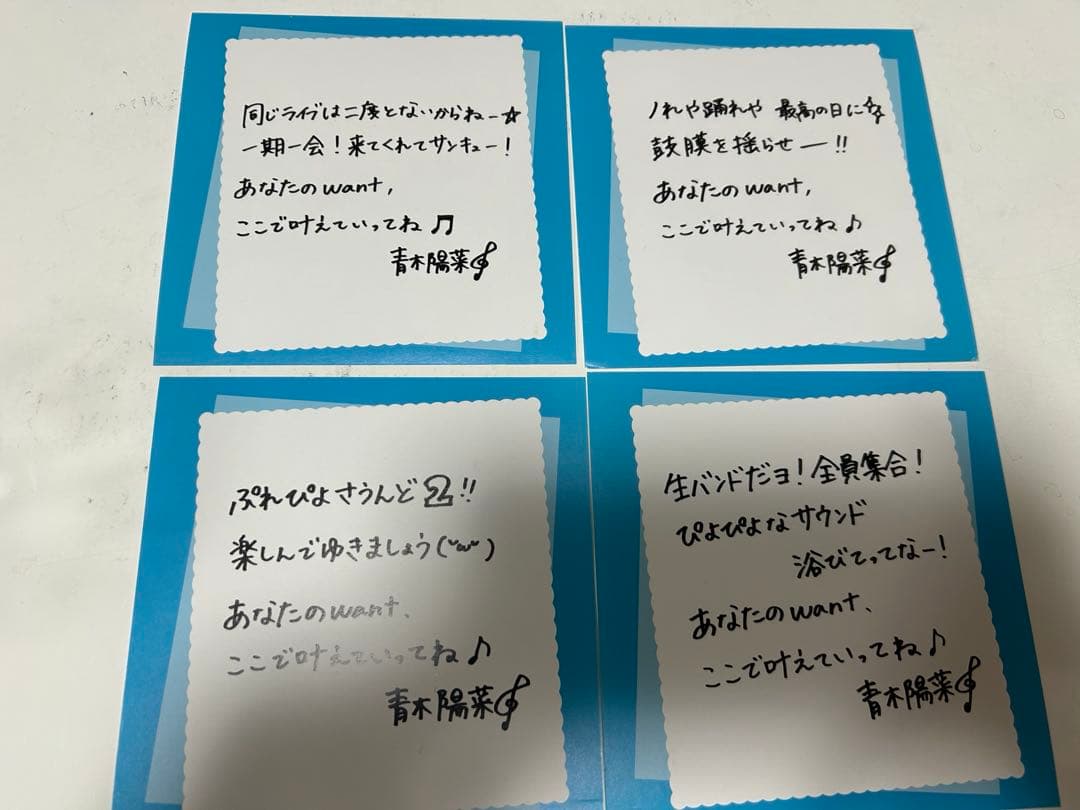 同じライブは二度とないからねー☆
一期一会！来てくれてサンキュー！
あなたのwant,
ここで叶えていってね♫
青木陽菜
ノれや踊れや 最高の日に☆
鼓膜を揺らせー!!
あなたのwant,
ここで叶えていってね♪
青木陽菜
ぷれぴよさうんど2!!
楽しんでゆきましょう(˘ω˘)
あなたのwant、
ここで叶えていってね♪
青木陽菜
生バンドだヨ！全員集合！
ぴよぴよなサウンド
浴びてってなー！
あなたのwant、
ここで叶えていってね♪
青木陽菜